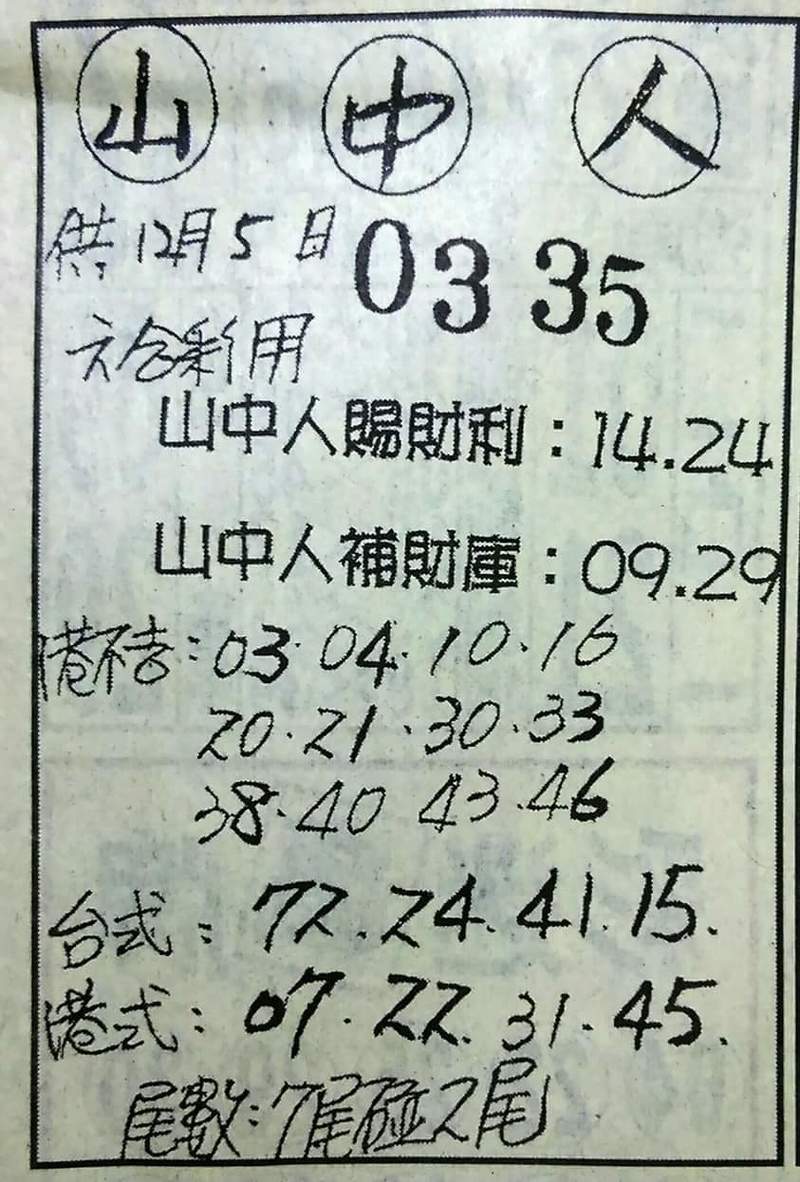 山中人
供12月5日
03 35
六合彩用
山中人賜財利：14.24
山中人補財庫：09.29
港不去：03·04·10·16
20·21·30·33
38·40 43·46
台式：72.24.41.15.
港式：07.22.31.45.
尾數：7尾碰2尾